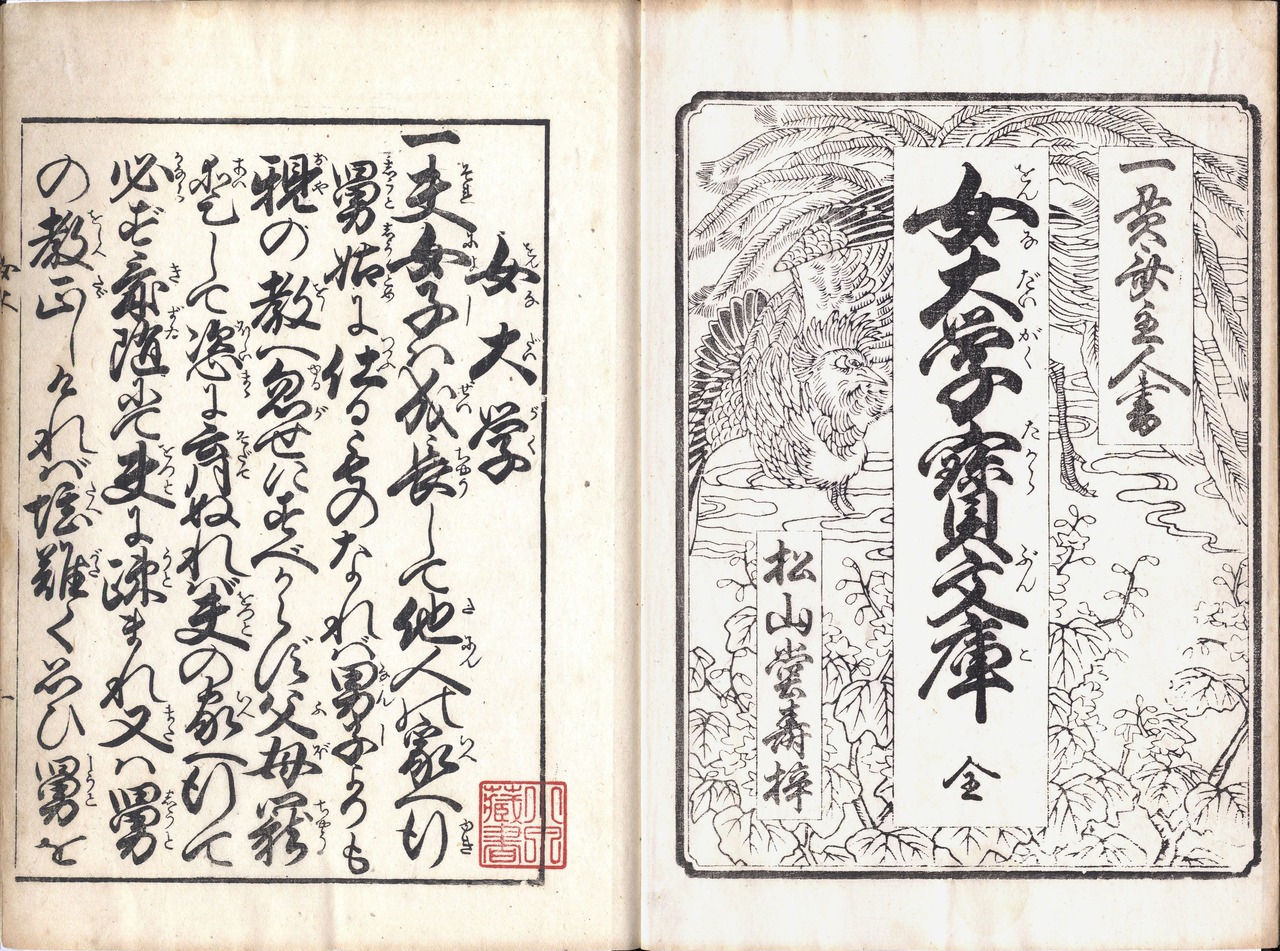 一
主人書
女大学寶文庫 全
松山堂壽梓
女大学
一夫女子ハ成長して他人の家へ行
舅姑に仕るものなれバ男子よりも
親の教へ忽せにすべからず父母寵
愛して恣に育ぬれバ夫の家へ行て
必ず氣随にて夫に疎まれ又ハ舅
の教正しけれバ堪難く思ひ舅を
女大
一
藏書